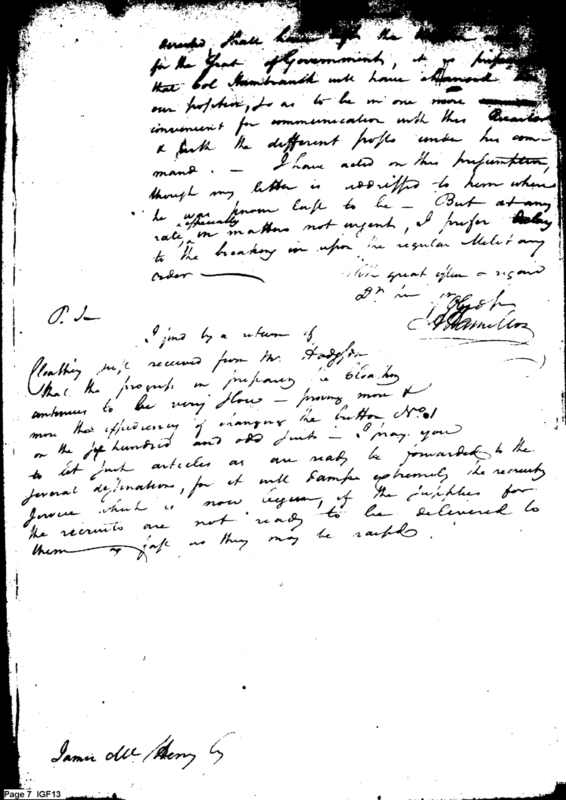 shall have the
for the Seat of Government, it is
that Col Hambranth will have the
our position, so as to be in one more
convenient for communication with this
& with the different posts under his com-
mand. — I have acted on this presumption,
though my letter is addressed to him where
he was known last to be — But at any
rate, especially in matters not urgent, I prefer delay
to the breaking in upon the regular Military
order —
With great esteem & regard
Dr Sir Yr Obed Sr
A Hamilton
P. S—
I find by a return of
Cloathing just received from Mr. Hodgson
that the progress in preparing the Cloathing
continues to be very slow — proving more &
more the expediency of changing the button No. 1
on the six hundred and odd suits — I pray you
to let such articles as are ready be forwarded to the
several destinations, for it will damp extremely the recruiting
service which is now begun, if the supplies for
the recruits are not ready to be delivered to
them as fast as they may be raised.
James McHenry Esq
Page 7 IGF13